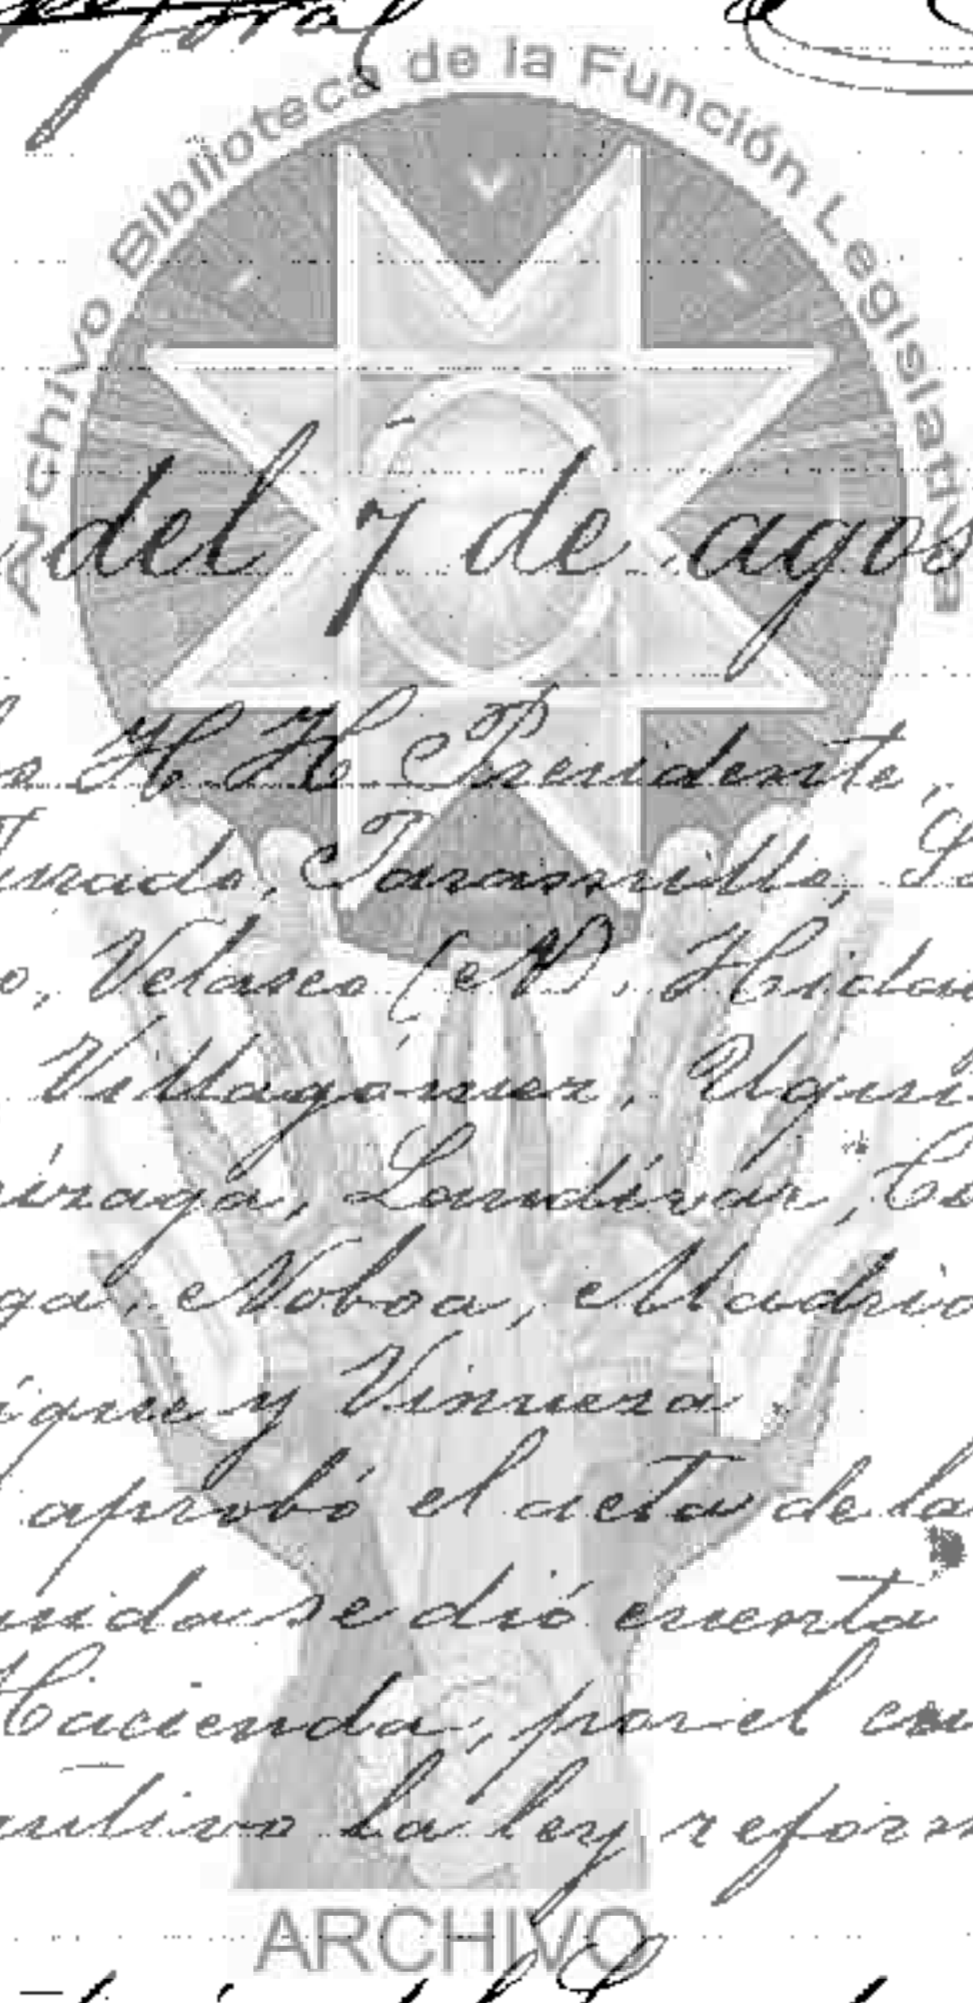 toral
Archivo Biblioteca de la Función Legislativa
del 7 de agos
H. H. Presidente,
Jurado, Jaramillo,
o, Velasco (N), Hidal
Villagómez,
ízaga, Landívar, Co
ga, Noboa, Madrid
igue y Vinueza.
aprobó el acta de la
uida se dió cuenta
Hacienda, por el cu
cutivo la ley reform
ARCHIVO